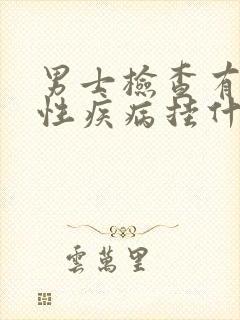 男士檢查有
性疾病挂什
雲萬里